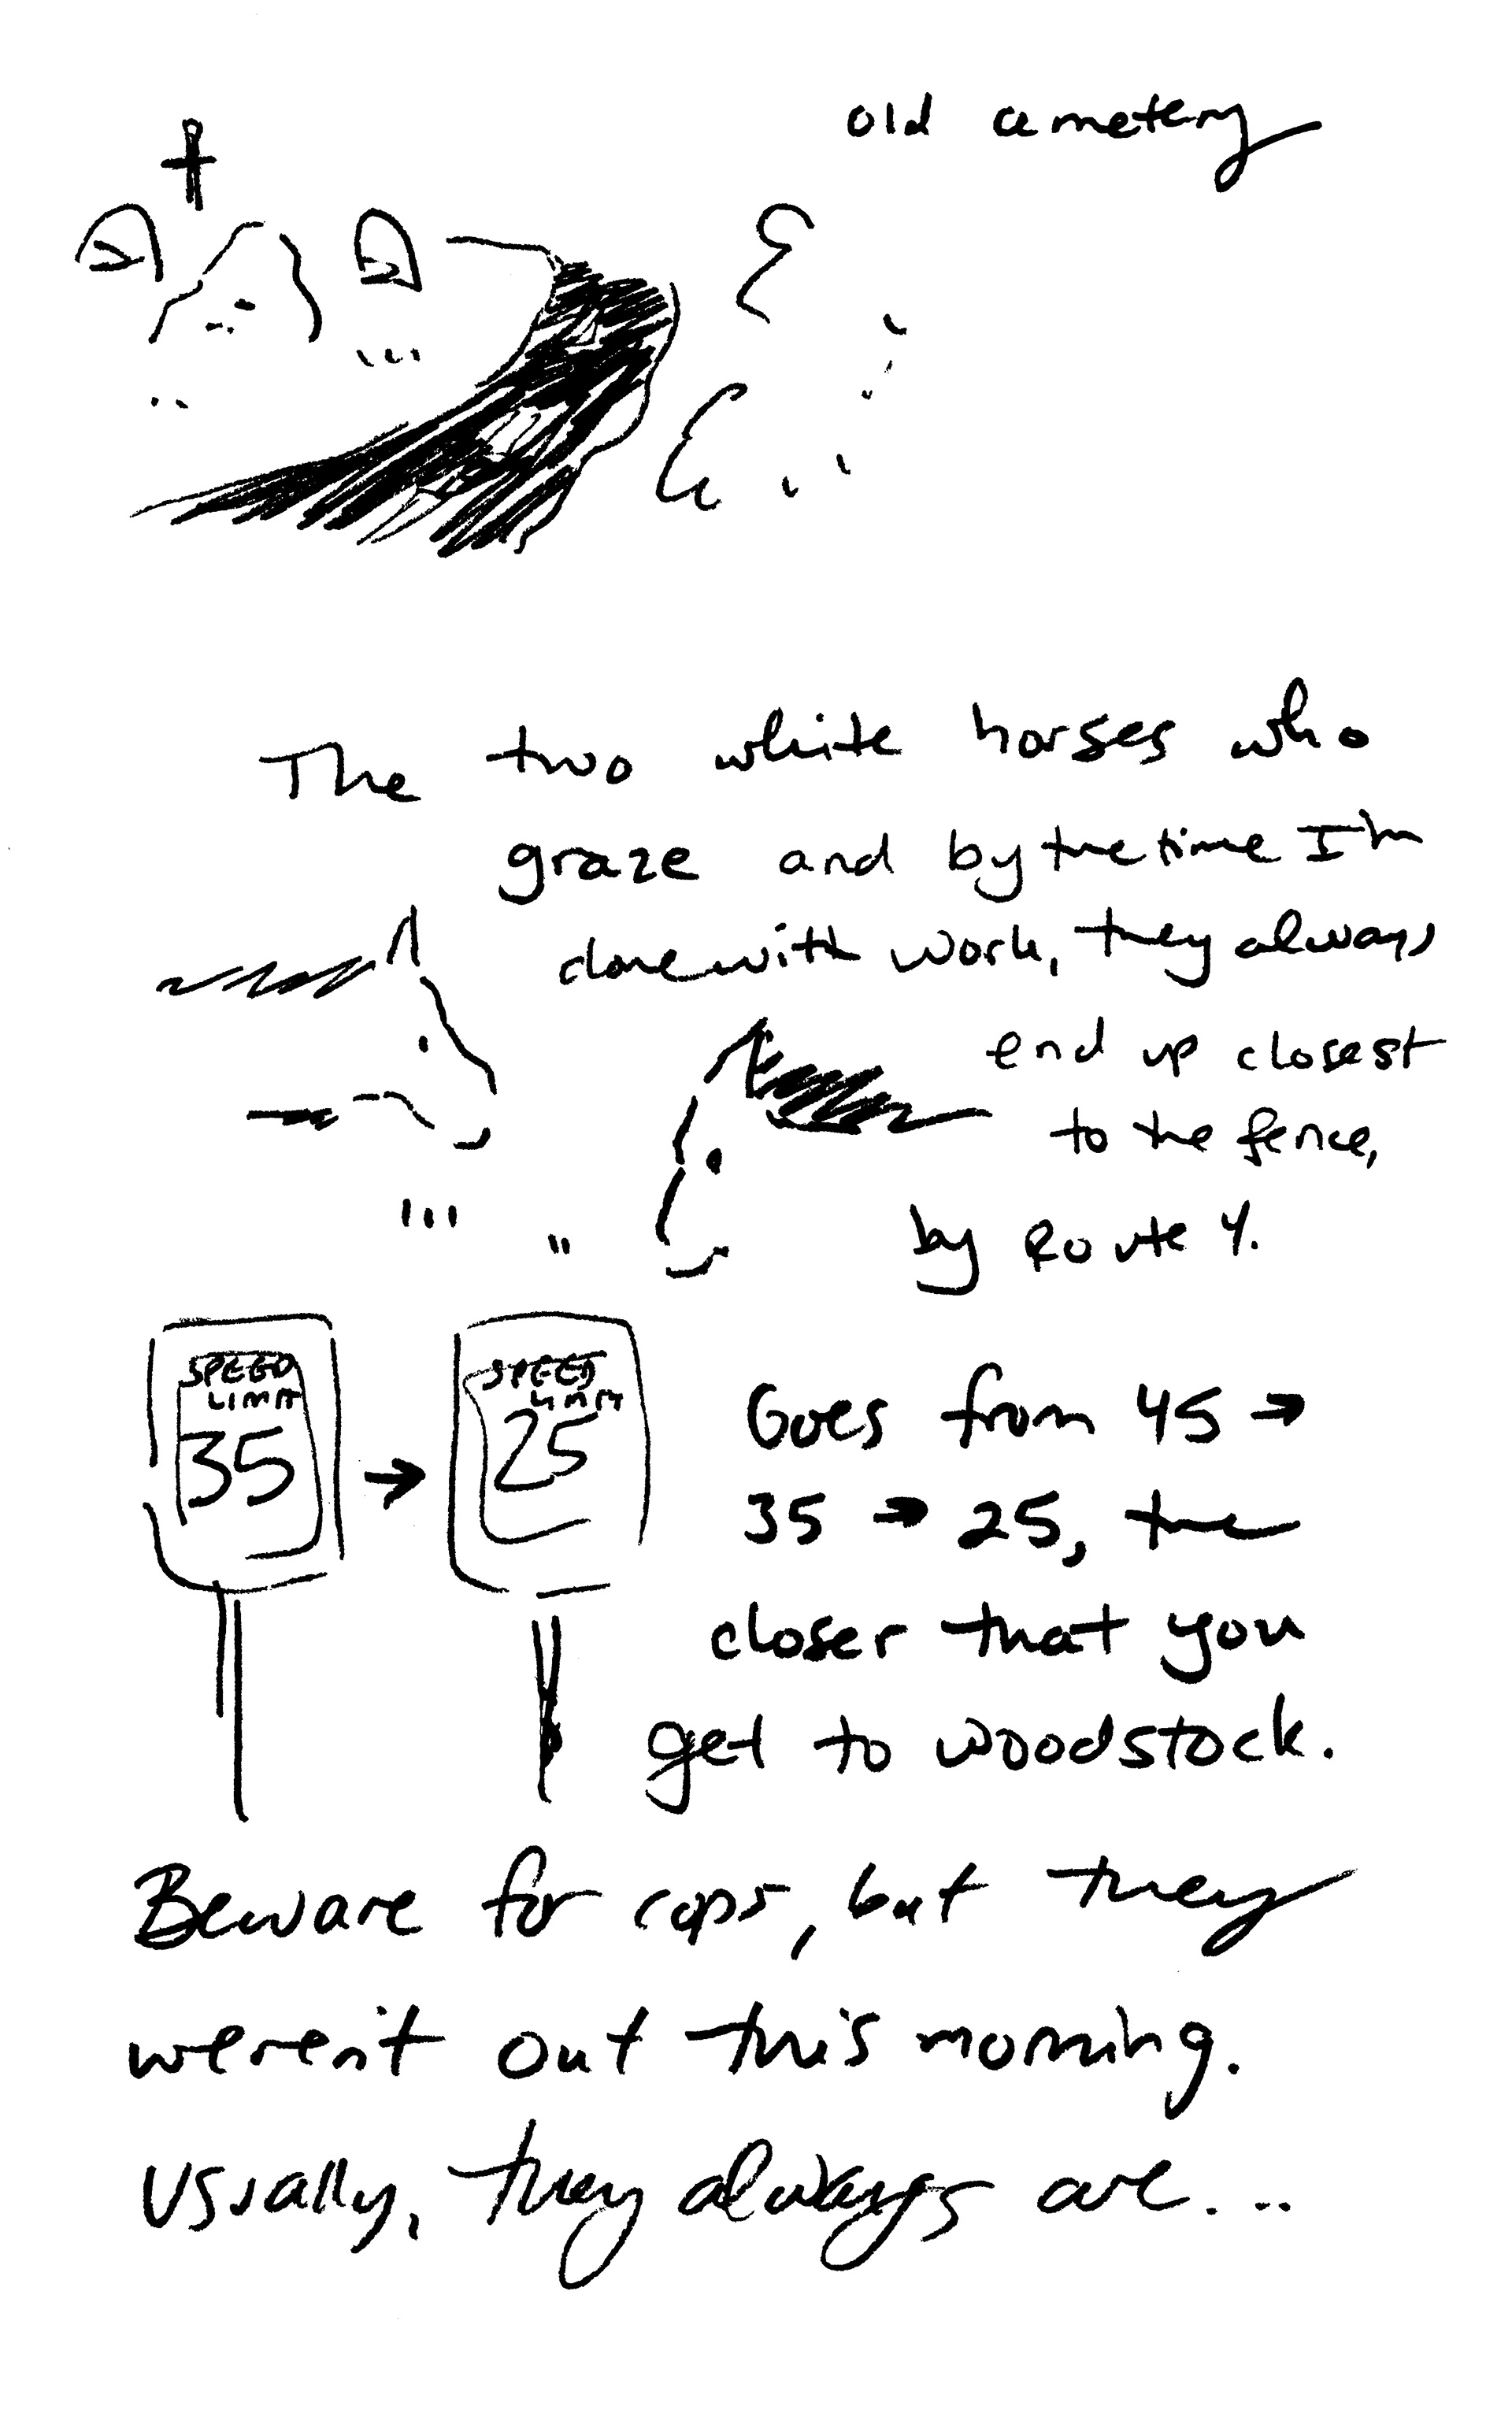 old cemetery
The two white horses who
graze and by the time I'm
done with work, they always
end up closest
to the fence,
by Route 4.
SPEED
LIMIT
35
→
SPEED
LIMIT
25
Goes from 45 →
35 → 25, the
closer that you
get to woodstock.
Beware for cops, but they
weren't out this morning.
Usually, they always are...